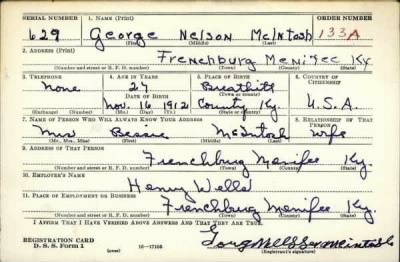 SERIAL NUMBER 1. NAME (Print) ORDER NUMBER
629 George Nelson McIntosh 133A
(First) (Middle) (Last)
2. ADDRESS (Print)
Frenchburg Menifee Ky
(Number and street or R. F. D. number) (Town) (County) (State)
3. TELEPHONE 4. AGE IN YEARS 5. PLACE OF BIRTH 6. COUNTRY OF CITIZENSHIP
None 27 Breathitt
DATE OF BIRTH (Town or county)
Nov. 16 1912 County Ky. U.S.A.
(Exchange) (Number) (Mo.) (Day) (Yr.) (State or country)
7. NAME OF PERSON WHO WILL ALWAYS KNOW YOUR ADDRESS 8. RELATIONSHIP OF THAT PERSON
Mrs Bessie McIntosh Wife
(Mr., Mrs., Miss) (First) (Middle) (Last)
9. ADDRESS OF THAT PERSON
Frenchburg Menifee Ky.
(Number and street or R. F. D. number) (Town) (County) (State)
10. EMPLOYER'S NAME
Henry Wells
11. PLACE OF EMPLOYMENT OR BUSINESS
Frenchburg Menifee Ky.
(Number and street or R. F. D. number) (Town) (County) (State)
I AFFIRM THAT I HAVE VERIFIED ABOVE ANSWERS AND THAT THEY ARE TRUE.
REGISTRATION CARD
D. S. S. Form 1 (over) 16-17105 McIntosh
(Registrant's signature)